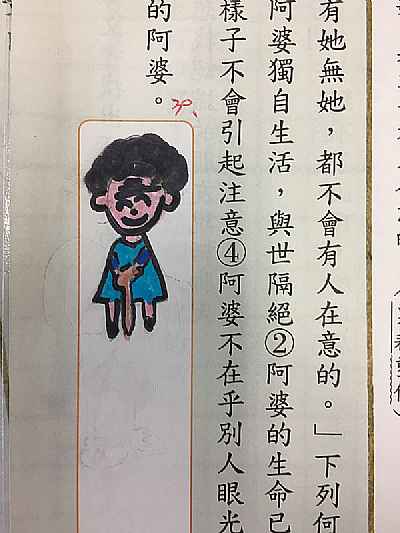 有她無她，都不會有人在意的。」下列何
阿婆獨自生活，與世隔絕②阿婆的生命已
樣子不會引起注意④阿婆不在乎別人眼光
的阿婆。